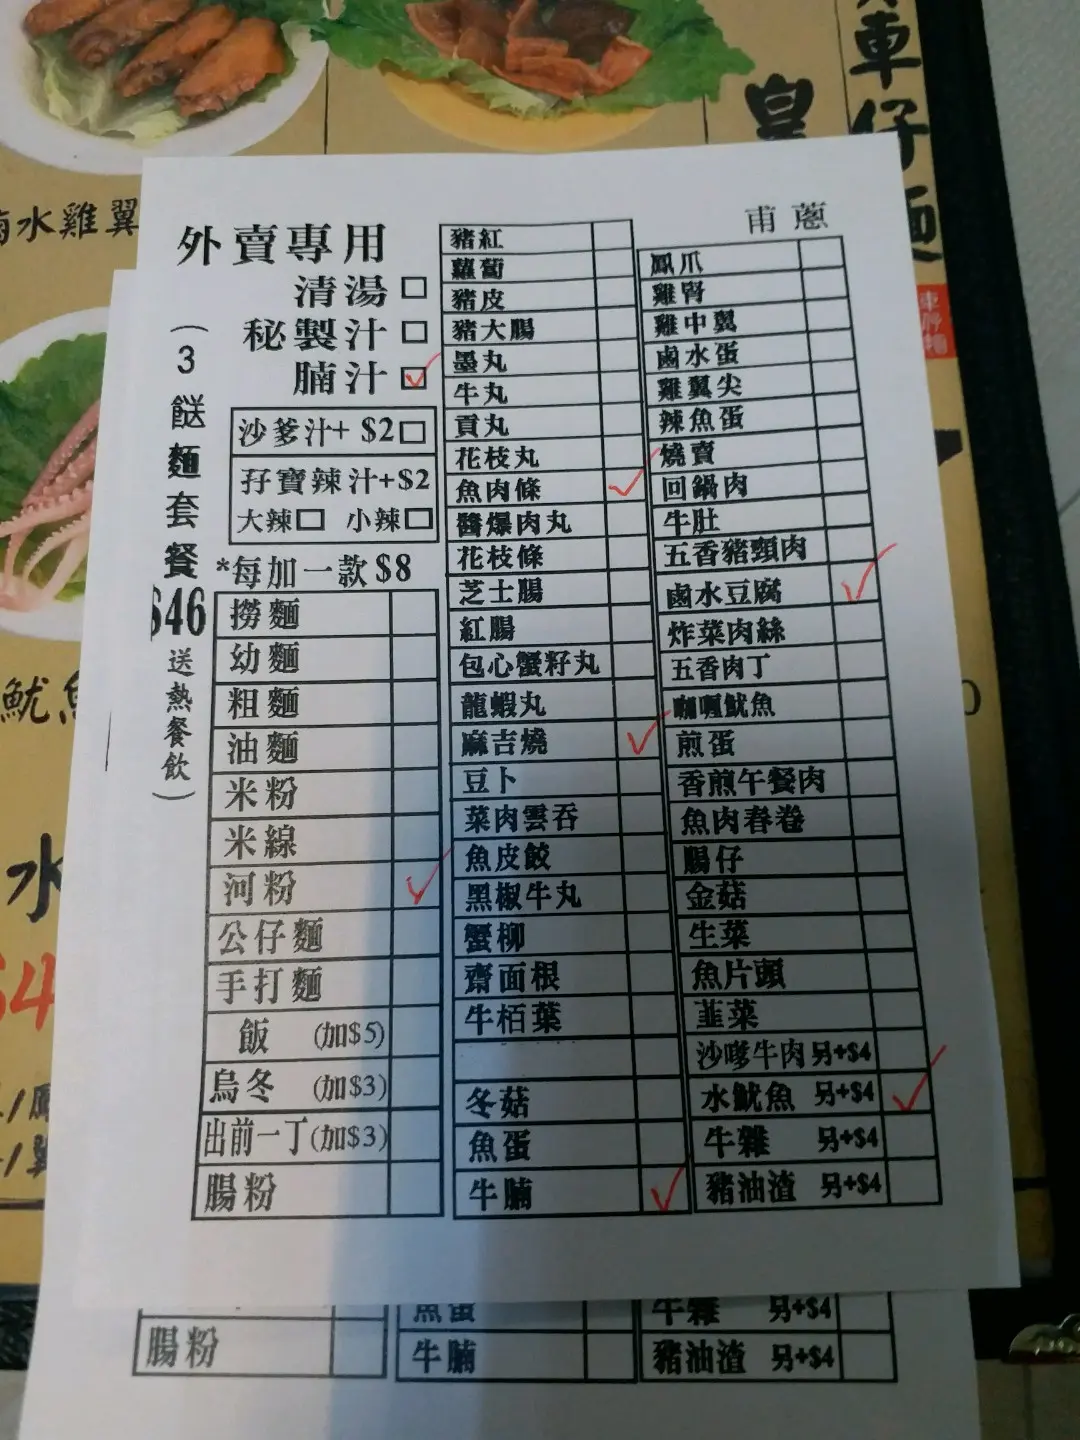 車仔麵
皇
滷水雞翼
魷魚
水
外賣專用
清湯
秘製汁
腩汁
沙爹汁+ $2
孖寶辣汁+$2
大辣 小辣
*每加一款$8
(3餸麵套餐
$46
送熱餐飲)
撈麵
幼麵
粗麵
油麵
米粉
米線
河粉
公仔麵
手打麵
飯 (加$5)
烏冬 (加$3)
出前一丁(加$3)
腸粉
豬紅
蘿蔔
豬皮
豬大腸
墨丸
牛丸
貢丸
花枝丸
魚肉條
醬爆肉丸
花枝條
芝士腸
紅腸
包心蟹籽丸
龍蝦丸
麻吉燒
豆卜
菜肉雲吞
魚皮餃
黑椒牛丸
蟹柳
齋面根
牛栢葉
冬菇
魚蛋
牛腩
甫 蔥
鳳爪
雞腎
雞中翼
鹵水蛋
雞翼尖
辣魚蛋
燒賣
回鍋肉
牛肚
五香豬頸肉
鹵水豆腐
炸菜肉絲
五香肉丁
咖喱魷魚
煎蛋
香煎午餐肉
魚肉春卷
腸仔
金菇
生菜
魚片頭
韮菜
沙嗲牛肉 另+$4
水魷魚 另+$4
牛雜 另+$4
豬油渣 另+$4
魚蛋
牛雜 另+$4
腸粉
牛腩
豬油渣 另+$4